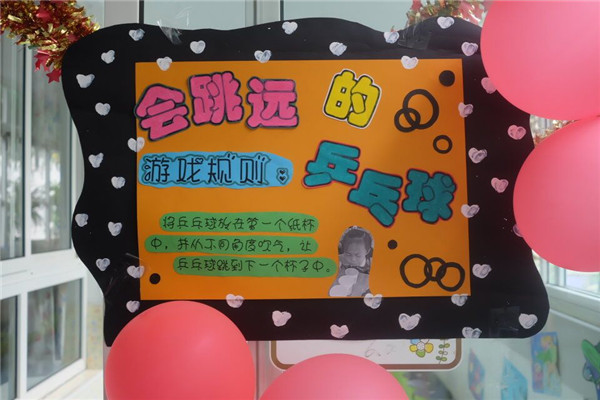 会跳远的
乒乓球
游戏规则：
将乒乓球放在第一个纸杯
中，并从不同角度吹气，让
乒乓球跳到下一个杯子中。